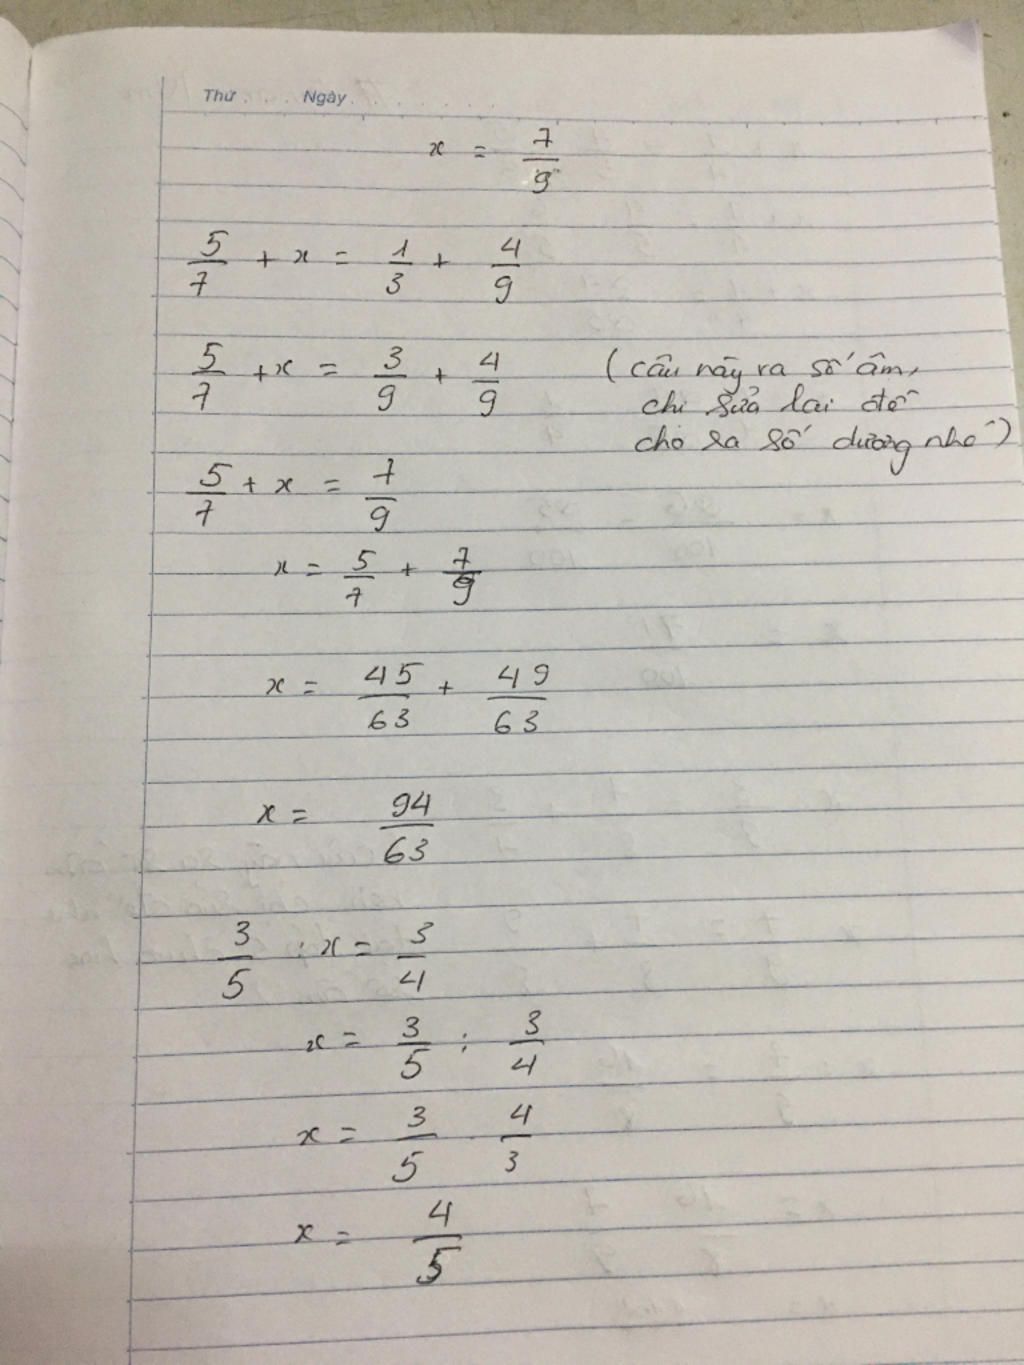 Thứ . . . . Ngày . . . . . . . .
x = 7/9
5/7 + x = 1/3 + 4/9
5/7 + x = 3/9 + 4/9 (câu này ra số âm,
chị sửa lại đề
cho ra số dương nhé)
5/7 + x = 7/9
x = 5/7 + 7/9
x = 45/63 + 49/63
x = 94/63
3/5 : x = 3/4
x = 3/5 : 3/4
x = 3/5 . 4/3
x = 4/5